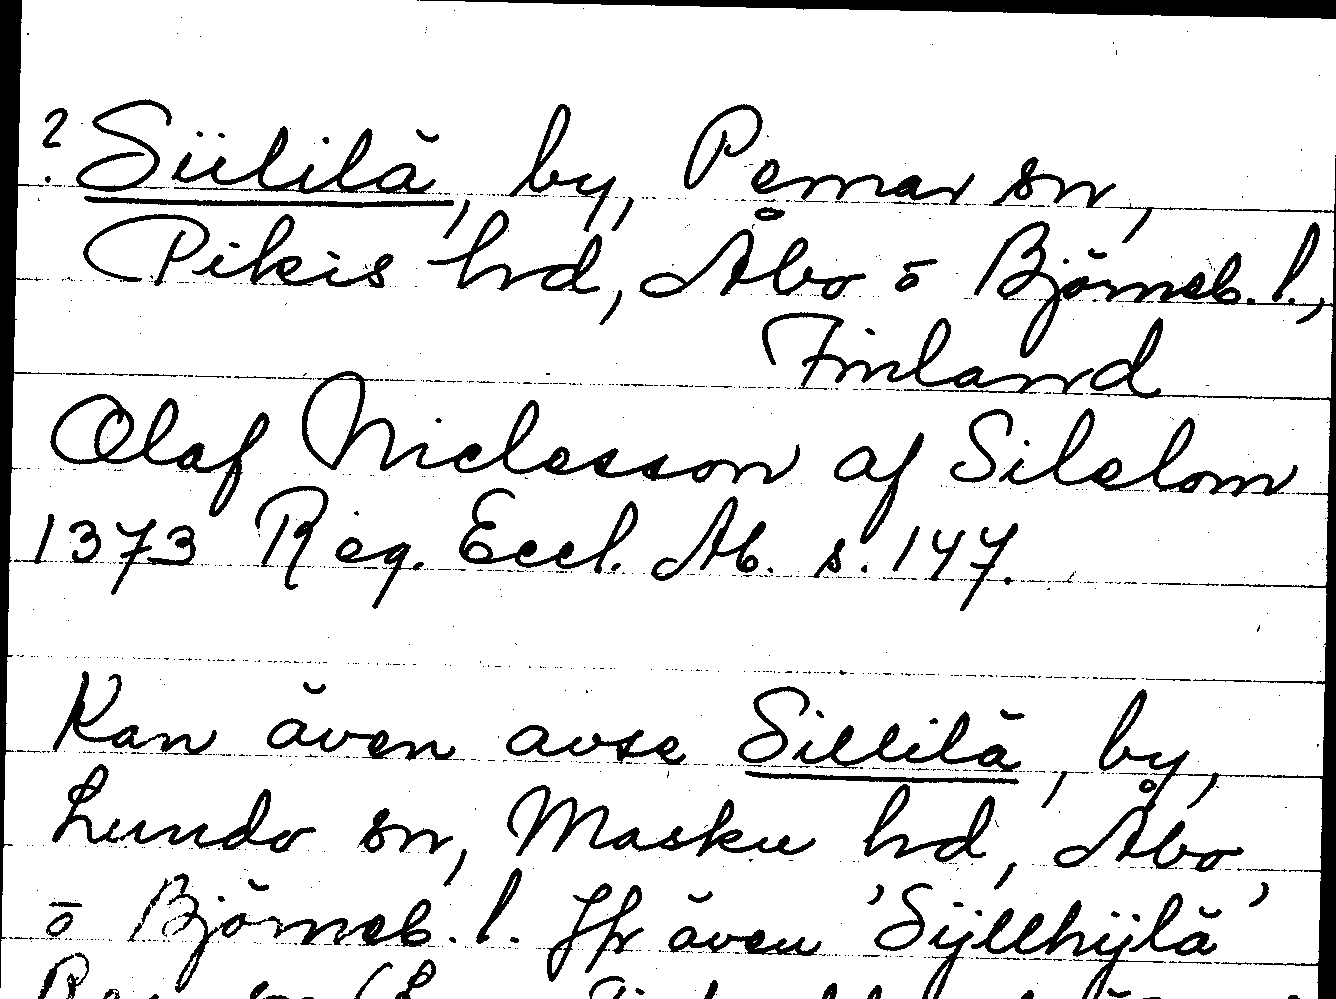 ? Siililä, by, Pemar sn,
Pikis hd, Åbo o Björneb. l.,
Finland
Olaf Niclesson af Silelom
1373 Reg. Eccl. Ab. s. 147.
Kan även avse Sillilä, by,
Lundo sn, Masku hd, Åbo
o Björneb. l. Jfr även 'Sÿllhÿlä'